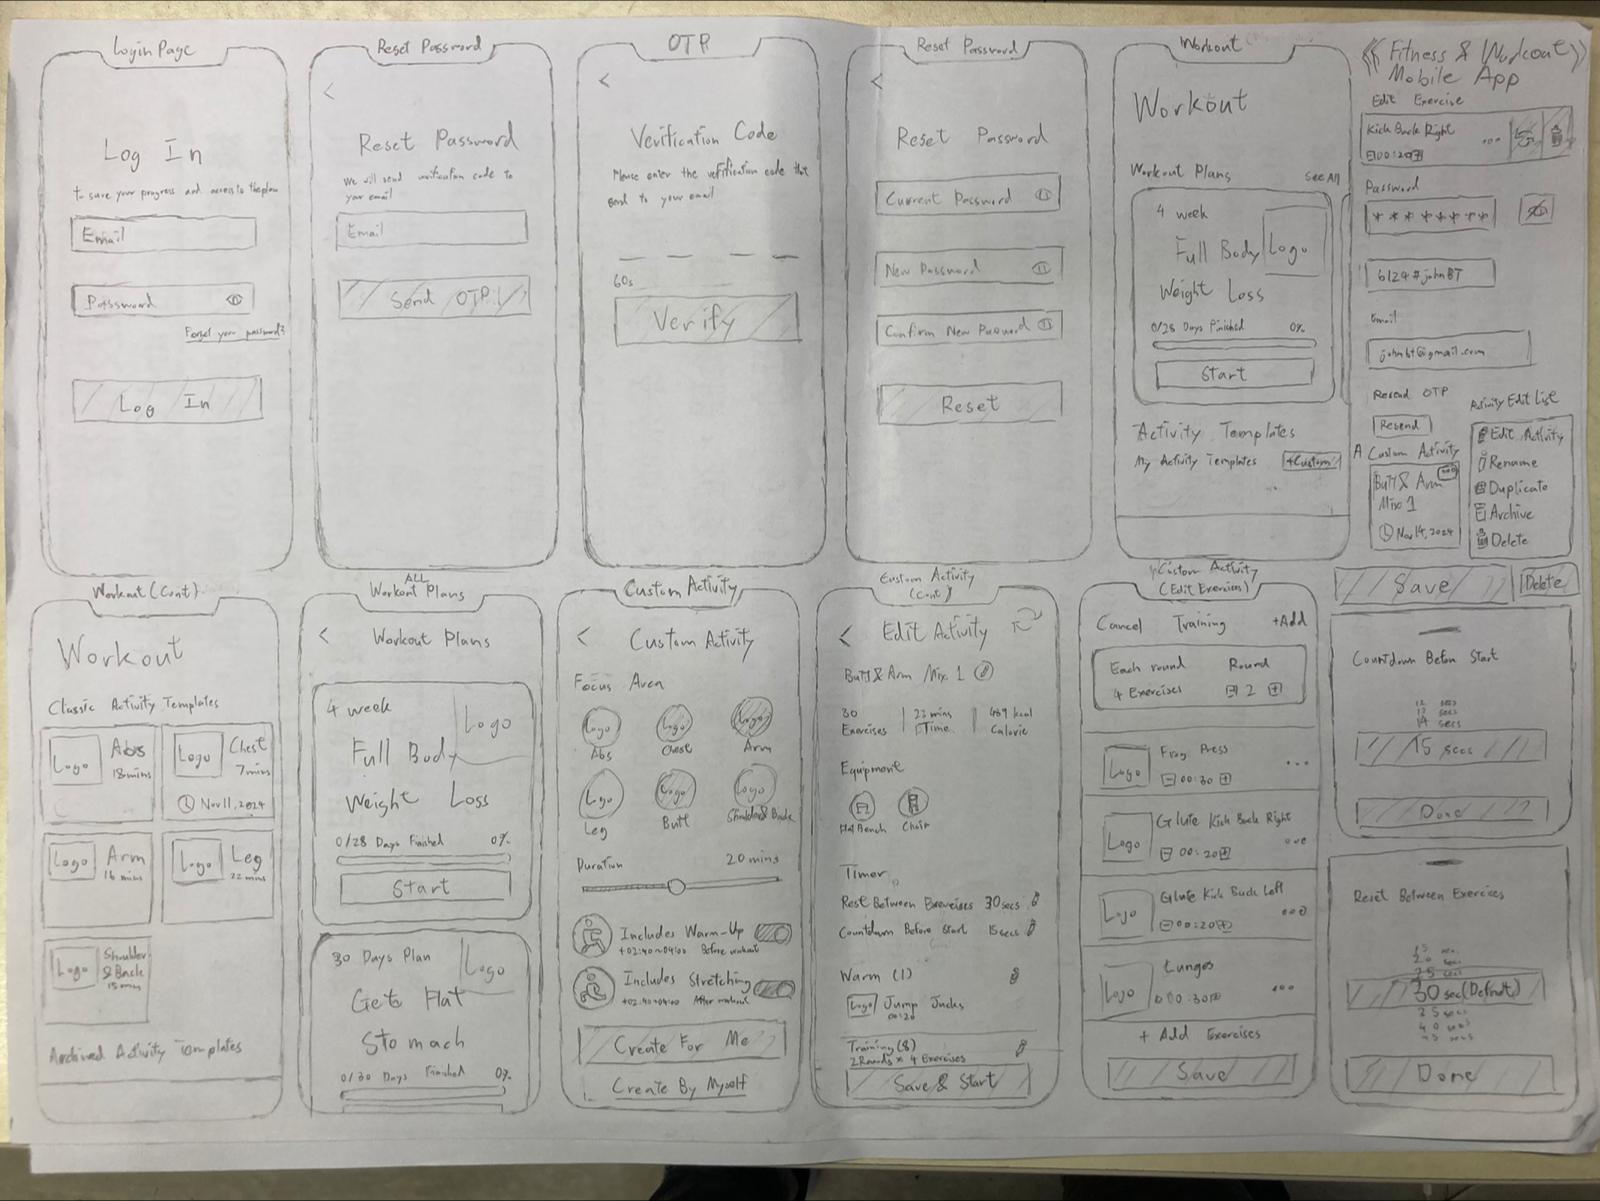 Login Page
Log In
to save your progress and access to the plan
Email
Password
Forget your password?
Log In
Reset Password
<
Reset Password
We will send verification code to
your email
Email
Send OTP
OTP
<
Verification Code
Please enter the verification code that
send to your email
60s
Verify
Reset Password
<
Reset Password
Current Password
New Password
Confirm New Password
Reset
Workout
Workout
Workout Plans See All
4 week
Full Body Logo
Weight Loss
0/28 Days Finished 0%
Start
Activity Templates
My Activity Templates +Custom
Fitness & Workout
Mobile App
Edit Exercise
Kick Back Right
00:20 ...
Password
* * * * * * * *
6124#johnBT
Email
johnbt@gmail.com
Resend OTP
Resend
A Custom Activity
Butt & Arm
Mix 1
Nov 14, 2024
Activity Edit List
Edit Activity
Rename
Duplicate
Archive
Delete
Save Delete
Workout (Cont)
Workout
Classic Activity Templates
Logo Abs
18 mins
Logo Chest
7 mins
Nov 11, 2024
Logo Arm
16 mins
Logo Leg
22 mins
Logo Shoulder
& Back
15 min
Archived Activity Templates
ALL
Workout Plans
< Workout Plans
4 week Logo
Full Body
Weight Loss
0/28 Days Finished 0%
Start
30 Days Plan Logo
Get Flat
Stomach
0/30 Days Finished 0%
Custom Activity
< Custom Activity
Focus Area
Logo Logo Logo
Abs Chest Arm
Logo Logo Logo
Leg Butt Shoulder & Back
Duration 20 mins
Includes Warm-Up
+02:40~04:00 Before workout
Includes Stretching
+02:40~04:00 After workout
Create For Me
Create By Myself
Custom Activity
(Cont)
< Edit Activity
Butt & Arm Mix 1
30 23 mins 469 kcal
Exercises Time Calorie
Equipment
Flat Bench Chair
Timer
Rest Between Exercises 30 secs
Countdown Before Start 15 secs
Warm (1)
Logo Jump Jacks
00:20
Training (8)
2 Rounds x 4 Exercises
Save & Start
Custom Activity
(Edit Exercises)
Cancel Training +Add
Each round Round
4 Exercises - 2 +
Frog Press
Logo - 00:30 + ...
Glute Kick Back Right
Logo - 00:20 + ...
Glute Kick Back Left
Logo - 00:20 + ...
Lunges
Logo 00:30 + ...
+ Add Exercises
Save
Countdown Before Start
12 secs
13 secs
14 secs
15 secs
Done
Reset Between Exercises
15 sec
20 sec
25 sec
30 sec (Default)
40 sec
45 secs
Done